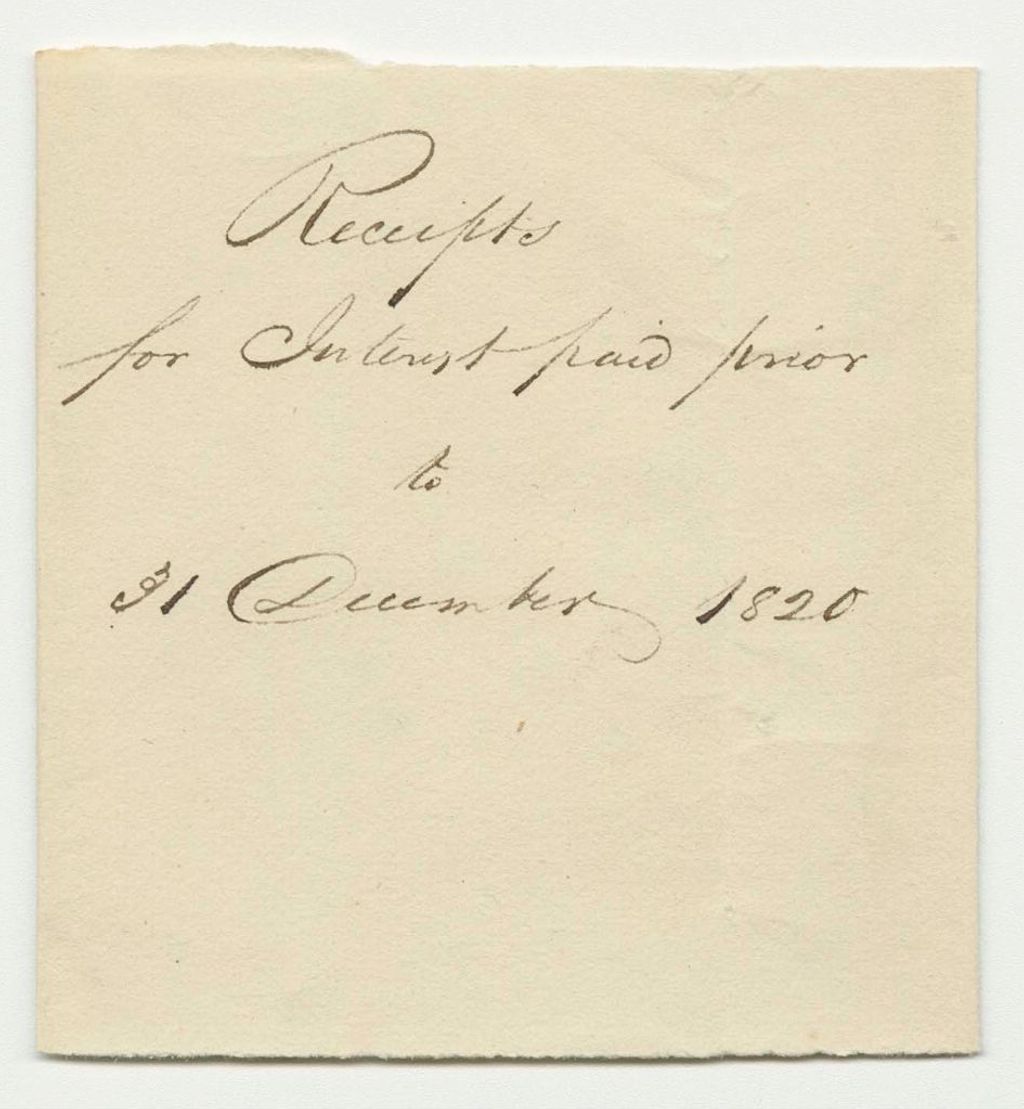 Receipts
for Interest paid prior
to
31 December 1820